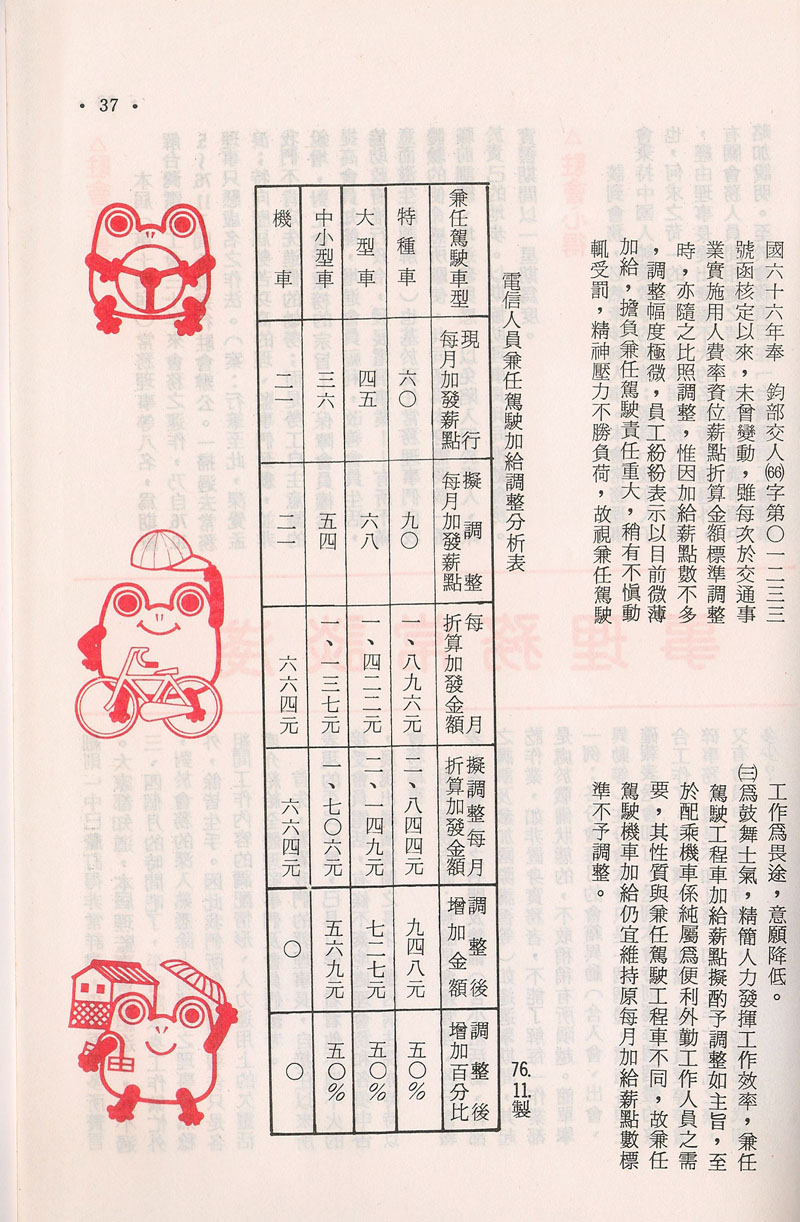 • 37 •
國六十六年奉　鈞部交人(66)字第〇一二三三
號函核定以來，未曾變動，雖每次於交通事
業實施用人費率資位薪點折算金額標準調整
時，亦隨之比照調整，惟因加給薪點數不多
，調整幅度極微，員工紛紛表示以目前微薄
加給，擔負兼任駕駛責任重大，稍有不愼動
輒受罰，精神壓力不勝負荷，故視兼任駕駛
工作爲畏途，意願降低。
㈢爲鼓舞士氣，精簡人力發揮工作效率，兼任
駕駛工程車加給薪點擬酌予調整如主旨，至
於配乘機車係純屬爲便利外勤工作人員之需
要，其性質與兼任駕駛工程車不同，故兼任
駕駛機車加給仍宜維持原每月加給薪點數標
準不予調整。
電信人員兼任駕駛加給調整分析表
76.11.製
兼任駕駛車型
現行每月加發薪點
擬調整每月加發薪點
每月折算加發金額
擬調整每月折算加發金額
調整後增加金額
調整後增加百分比
特種車　六〇　九〇　一、八九六元　二、八四四元　九四八元　五〇%
大型車　四五　六八　一、四二二元　二、一四九元　七二七元　五〇%
中小型車　三六　五四　一、一三七元　一、七〇六元　五六九元　五〇%
機車　二一　二一　六六四元　六六四元　〇　〇